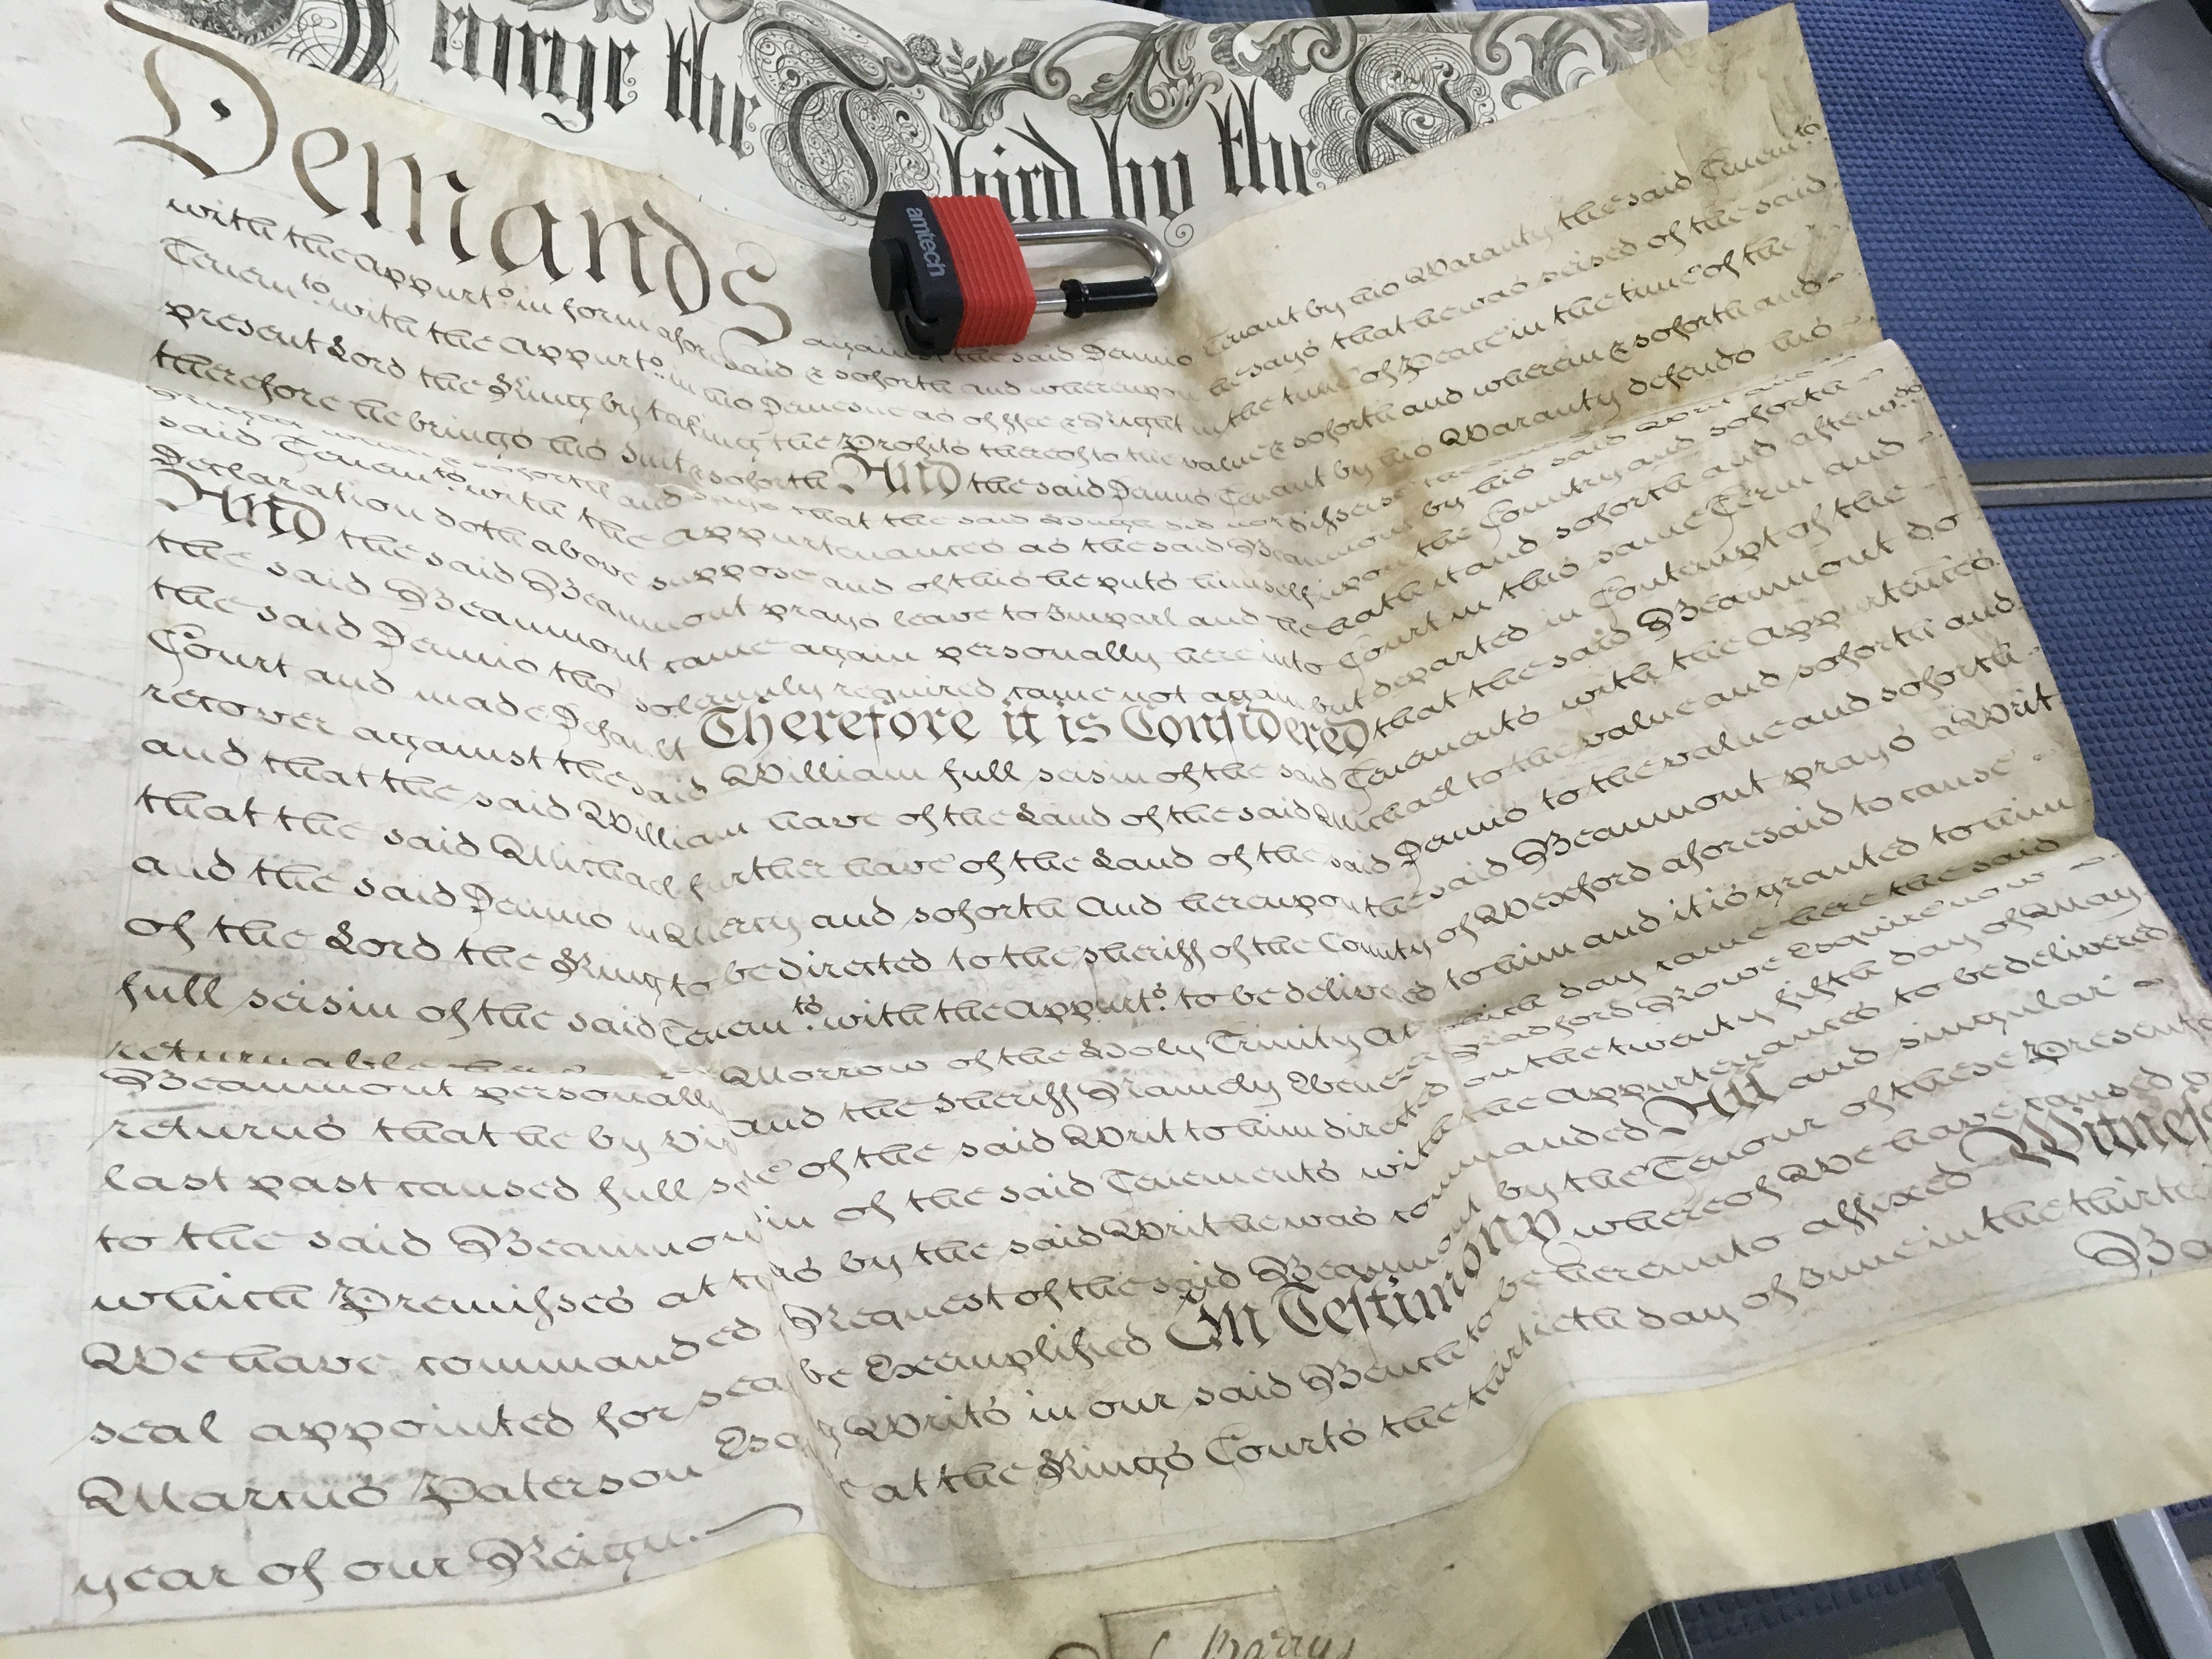 George the Third by the G
Demands against the said Dennis Tenant by his Waranty the said Tenem.ts
with the appurt.s in form aforesaid & soforth and whereupon he says that he was seised of the said
Tenem.ts with the appurt.s in his Demesne as of ffee & Right in the time of Peace in the time of the
present Lord the King by taking the Profits thereof to the value & soforth and wherein & soforth and
therefore he brings his suit & soforth And the said Dennis Tenant by his Waranty defends his
and says that the said Hugh did not disseise
said Tenem.ts with the appurtenances as the said Beaumont by his said
Declaration doth above suppose and of this he puts himself upon the Country and soforth
And the said Beaumont prays leave to Imparl and he hath it and soforth and afterw.ds
the said Beaumont came again personally here into Court in this same Term and
the said Dennis tho' solemnly required came not again but departed in Contempt of the
Court and made Default Therefore it is Considered that the said Beaumont do
recover against the said William full seisin of the said Tenements with the appurtences
and that the said William have of the Land of the said Michael to the value and soforth and
that the said Michael further have of the Land of the said Dennis to the value and soforth
and the said Dennis in Mercy and soforth And hereupon the said Beaumont prays a Writ
of the Lord the King to be directed to the sheriff of the County of Wexford aforesaid to cause
full seisin of the said Tenem.ts with the appurt.s to be delivered to him and it is granted to him
returnable here Morrow of the Holy Trinity At which day came here the said
Beaumont personally and the sheriff Namely Ebenezer Radford Rowe Esquire now
returns that he by Virtue of the said Writ to him directed on the twenty fifth day of May
last past caused full seisin of the said Tenements with the appurtenances to be delivered
to the said Beaumont as by the said Writ he was commanded All and singular
which Premisses at the Request of the said Beaumont by the Tenour of these Presents
We have commanded to be Exemplified In Testimony whereof We have caused
seal appointed for sealing Writs in our said Bench to be hereunto affixed Witness
Marcus Paterson Esq.r at the Kings Courts the thirtieth day of June in the thirte
year of our Reign. Ba
Barrys
amtech